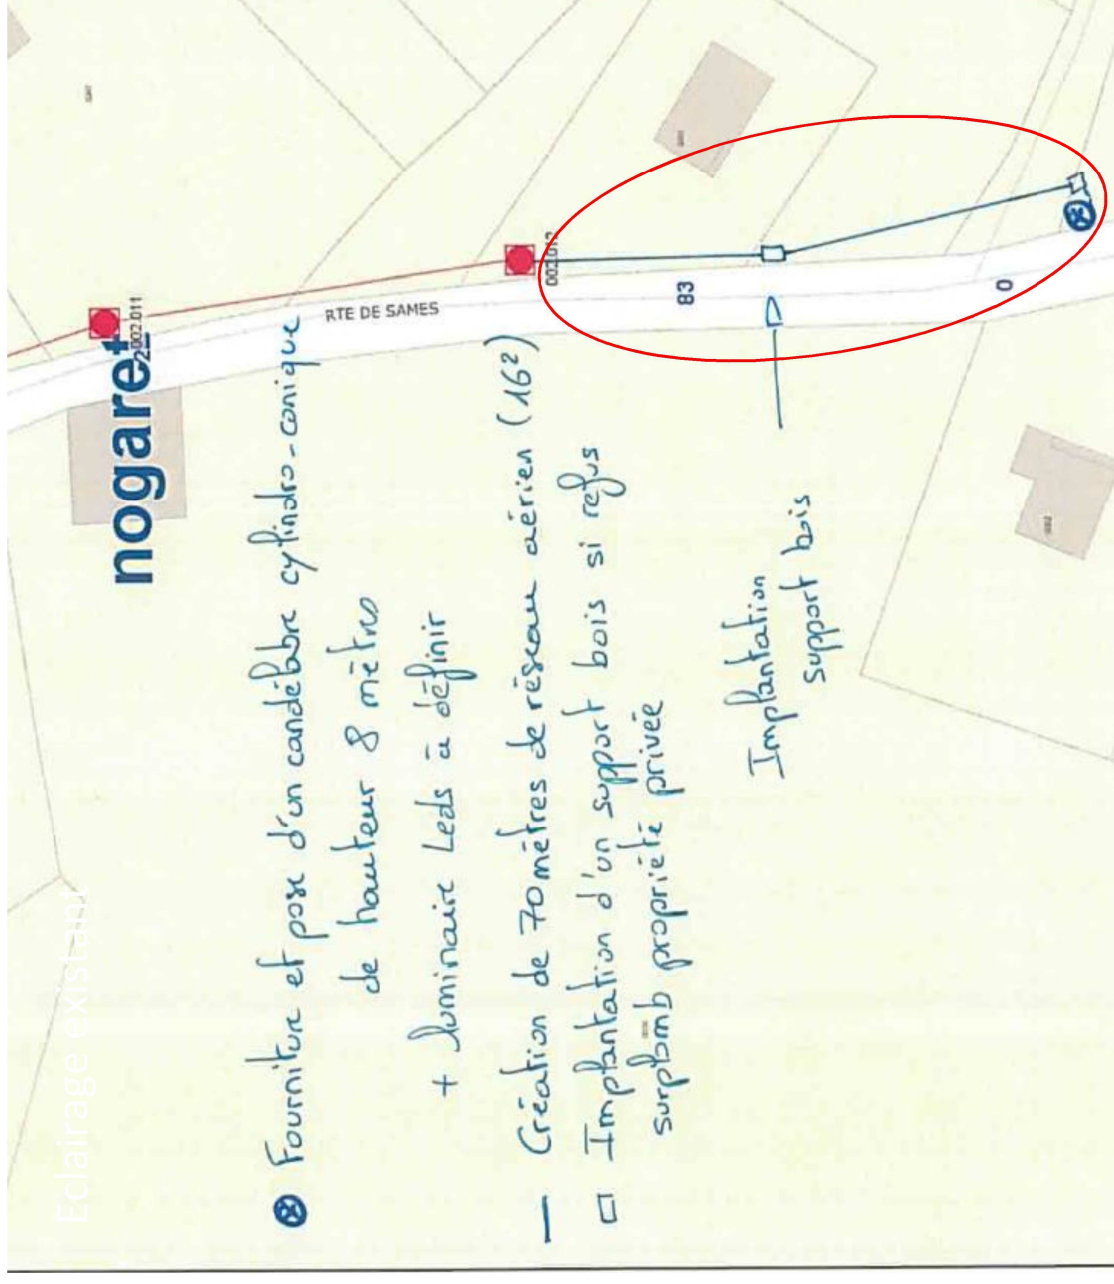 Eclairage existant
nogaret
2
002.011
RTE DE SAMES
002.012
83
0
Fourniture et pose d'un candélabre cylindro-conique
de hauteur 8 mètres
+ luminaire Leds à définir
Création de 70 mètres de réseau aérien (16²)
Implantation d'un support bois si refus
surplomb propriété privée
Implantation
support bois